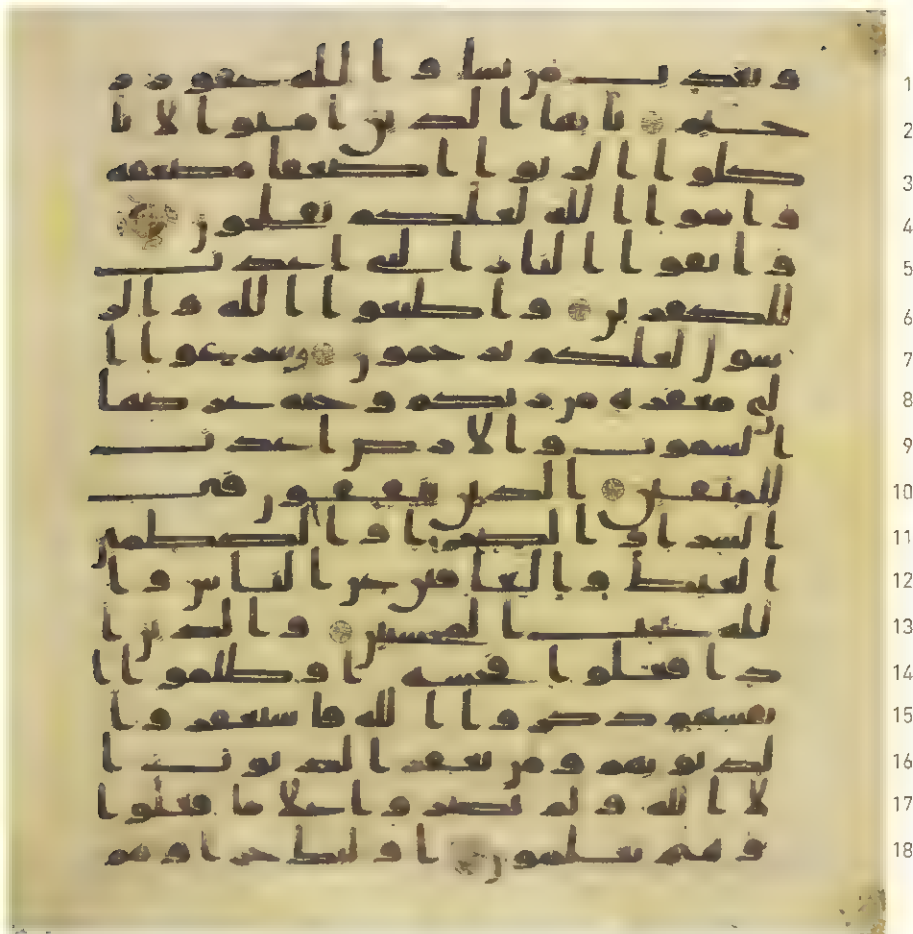 1 ويعذب من يشا والله غفور ر
2 حيم يايها الذين امنوا لا تا
3 كلوا الربوا اضعفا مضعفه
4 واتقوا الله لعلكم تفلحون
5 واتقوا النار التي اعدت
6 للكفرين واطيعوا الله والر
7 سول لعلكم ترحمون وسرعوا ا
8 لى مغفره من ربكم وجنه عرضها
9 السموت والارض اعدت
10 للمتقين الذين ينفقون في
11 السرا والضرا والكظمين
12 الغيظ والعافين عن الناس وا
13 لله يحب المحسنين والذين ا
14 ذا فعلوا فحشه او ظلموا ا
15 نفسهم ذكروا الله فاستغفروا
16 لذنوبهم ومن يغفر الذنوب ا
17 لا الله ولم يصروا على ما فعلوا
18 وهم يعلمون اوليك جزاوهم